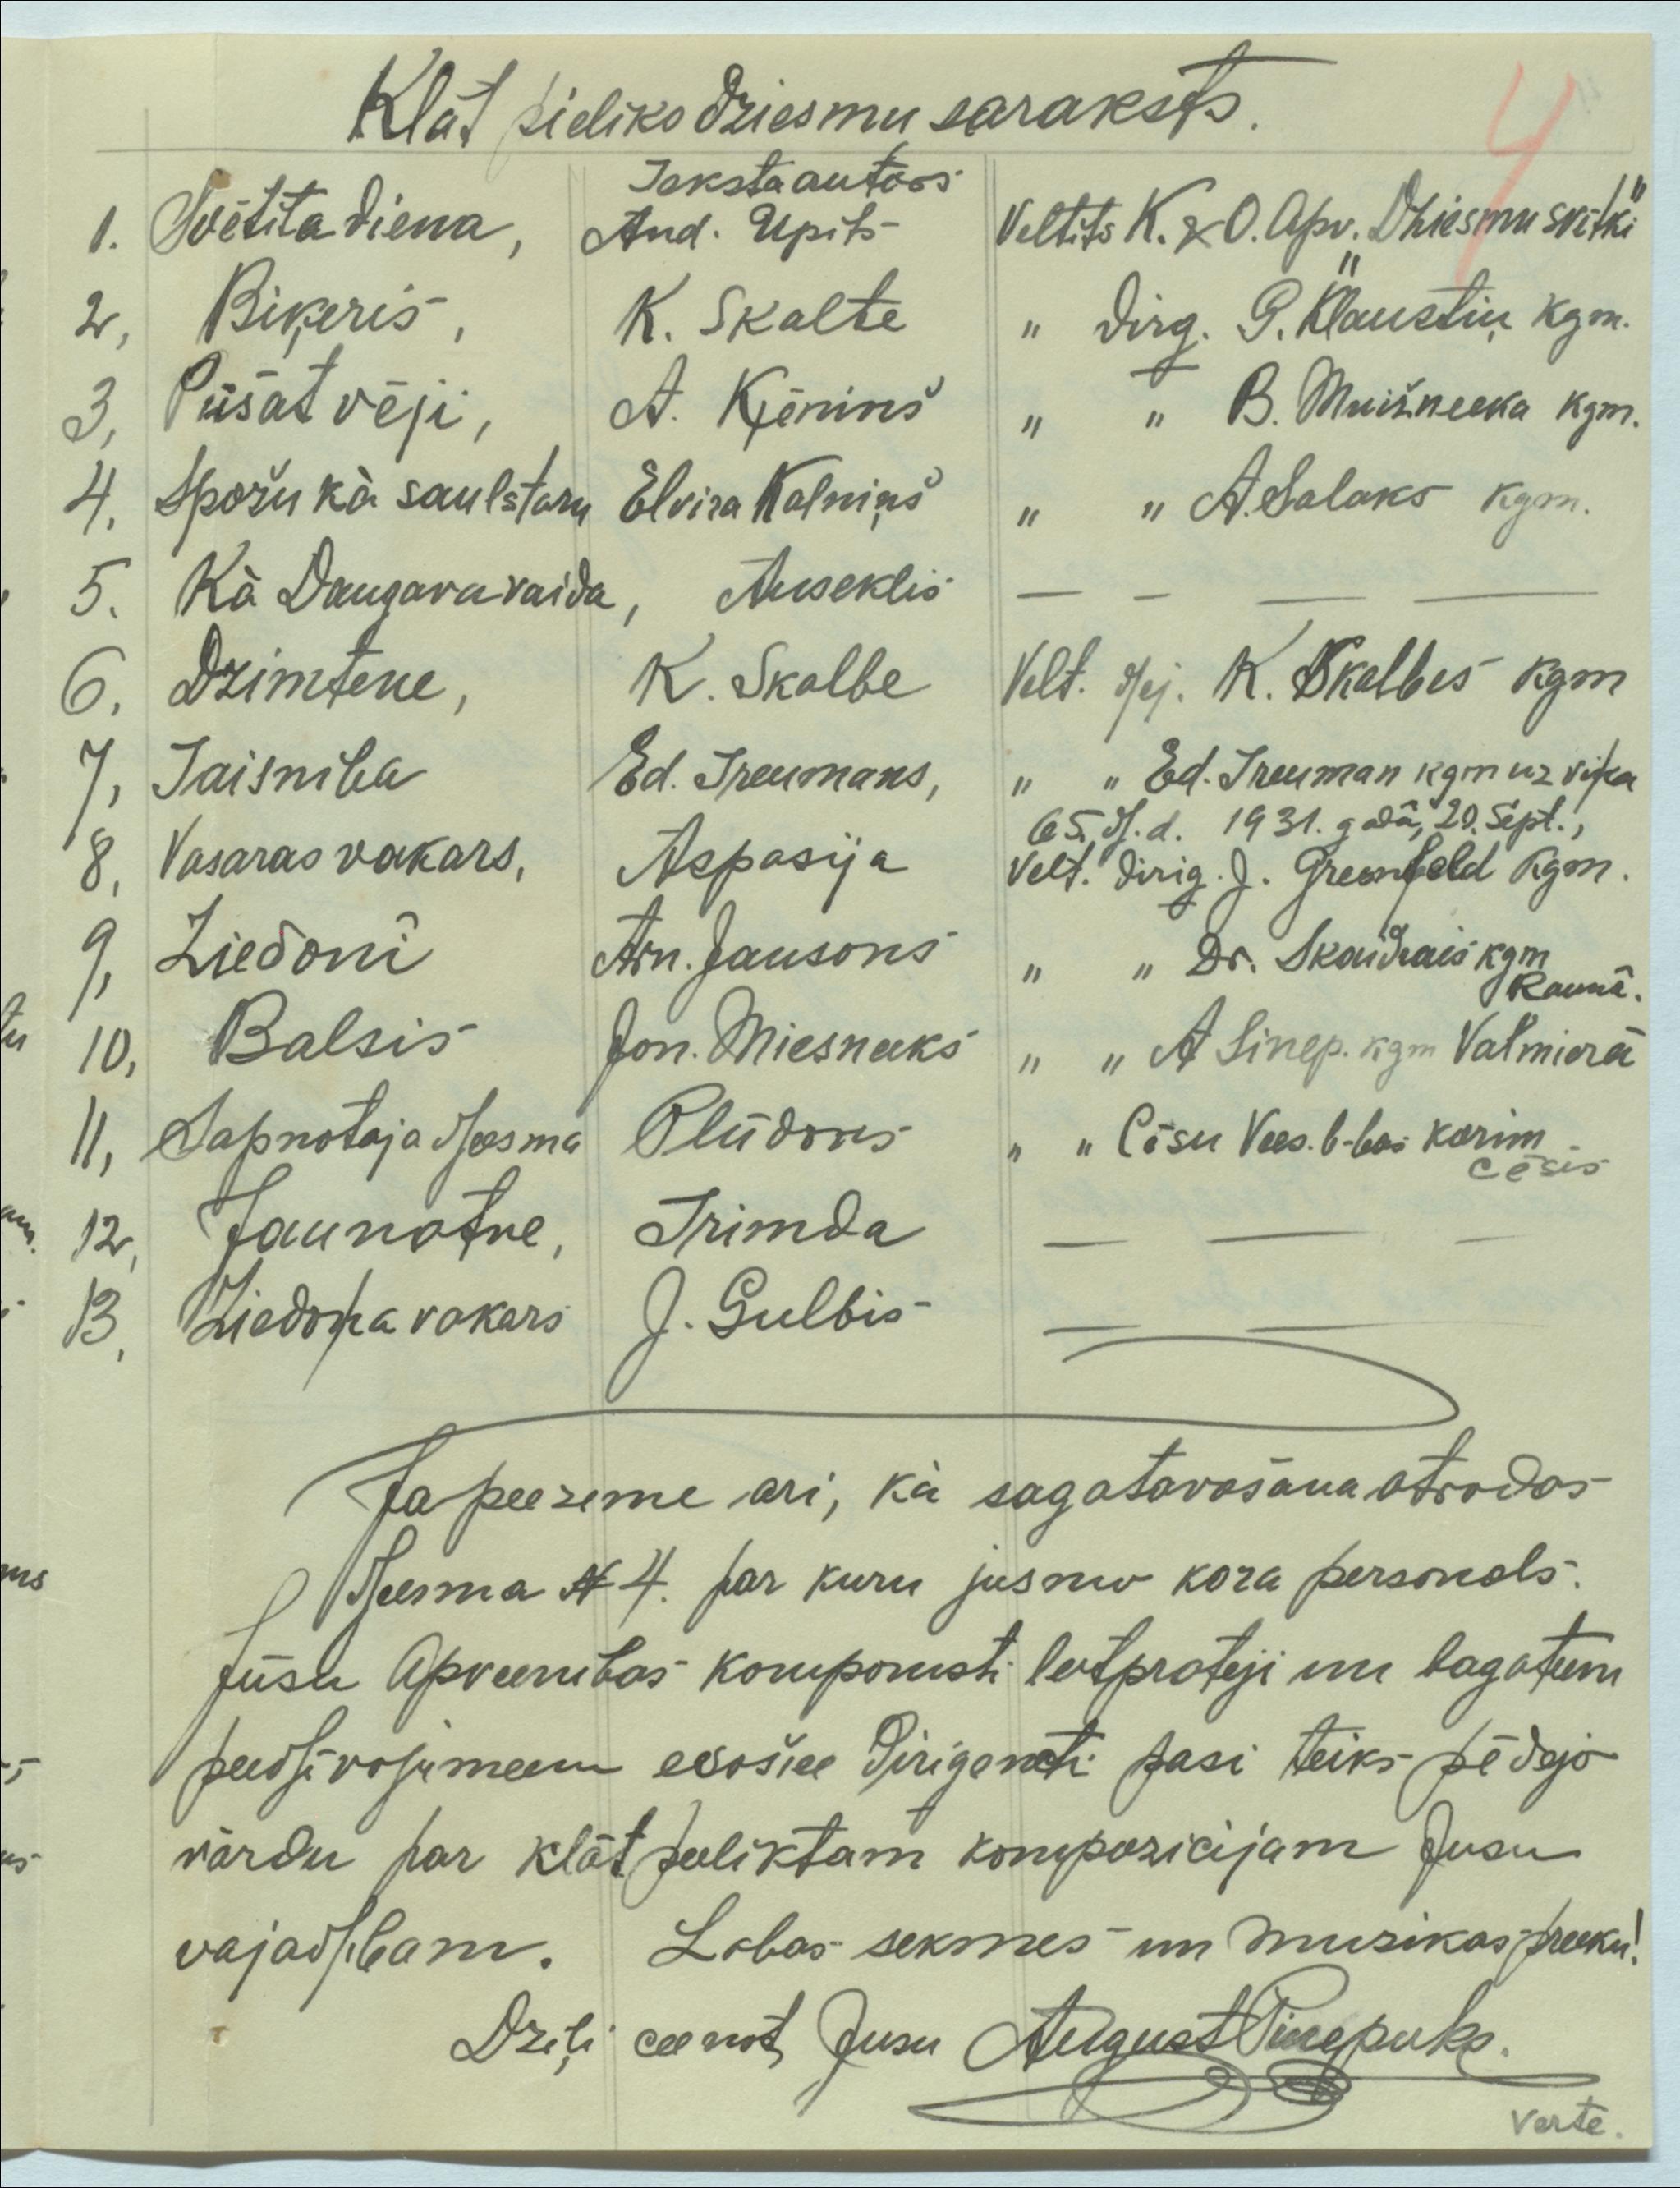 Klāt pieliko dziesmu saraksts.
4
Teksta autors
1. Svētīta diena, And. Upits Veltits K. & O. Apv. "Dziesmu svētki"
2, Biķeris, K. Skalbe " dirg. G. Klaustiņ kgm.
3, Pūšat vēji, A. Ķēniņš " " B. Muižneeka kgm.
4. Spožu kà saulstaru Elvira Kalniņš " " A. Salaks kgm.
5. Kà Daugava vaida, Auseklis — — — —
6, Dzimtene, K. Skalbe Velt. dzej. K. Skalbes kgm
7, Taisniba Ed. Treumans, " " Ed. Treuman kgm uz viņa
65 dz. d. 1931. gadā, 20. Sept.,
8, Vasaras vakars, Aspasija Velt. dirig. J. Greenfeld kgm.
9, Ziedonī Arn. Jansons " " Dr. Skaidrais kgm
Raunā.
10, Balsis Jon. Miesneeks " " A Sinep. kgm Valmierā
11, Sapnotaja dzeesma Plūdons " " Cēsu Vees. b-bas korim
Cēsis
12, Jaunatne, Trimda — — —
13, Ziedoņa vakars J. Gulbis — —
Ja peezeme ari, kà sagatavošana atrodas
dzeesma № 4. par kuru jusmo kora personals.
Jūsu Apveenibas komponisti letprateji un bagateem
peedzivojumeem esošiee Dirigenti pasi teiks pēdejo
vārdu par klāt peeliktam kompozicijam Jusu
vajadzibam. Labas sekmes un muzikas preeku!
Dziļi ceenot, Jusu August Pinepuks.
Verte.